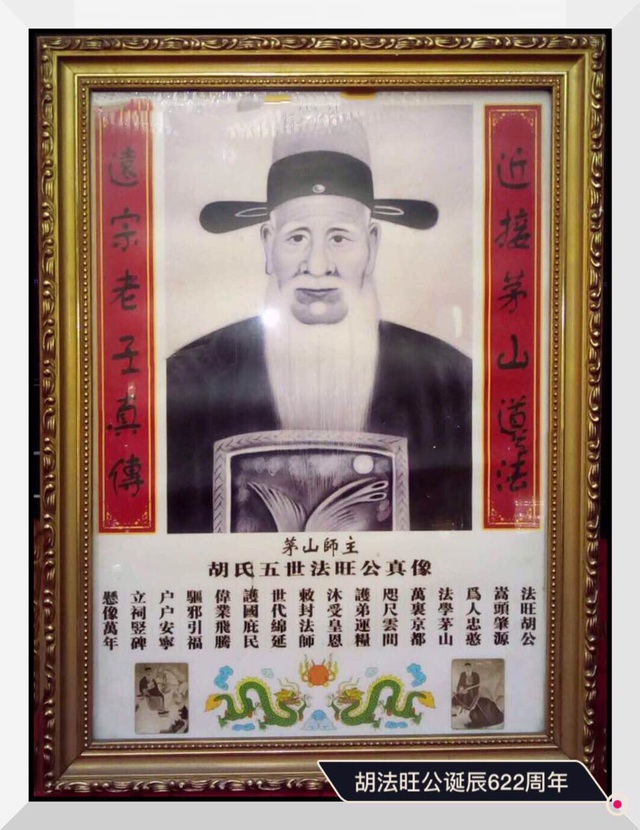 近接茅山道法
遠宗老子真傳
茅山師主
胡氏五世法旺公真像
法旺胡公
嵩頭肇源
爲人忠憨
法學茅山
萬裏京都
咫尺雲間
護弟運糧
沐受皇恩
敕封法師
世代綿延
護國庇民
偉業飛騰
驅邪引福
户户安寧
立祠竪碑
懸像萬年
胡法旺公诞辰622周年